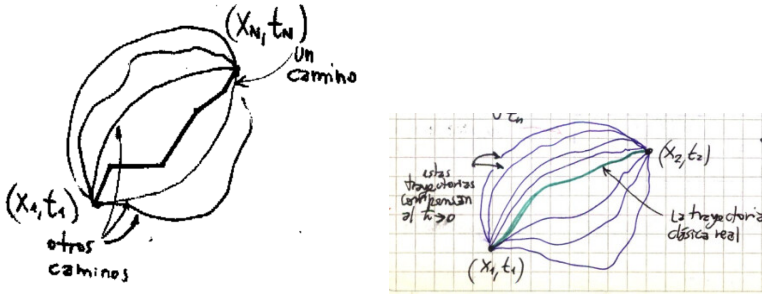 (X_N, t_N)
Un
camino
(X_1, t_1)
otros
caminos
t_n
estas
trayectorias
compensan
al ħ→0
(X_2, t_2)
La trayectoria
clásica real
(X_1, t_1)